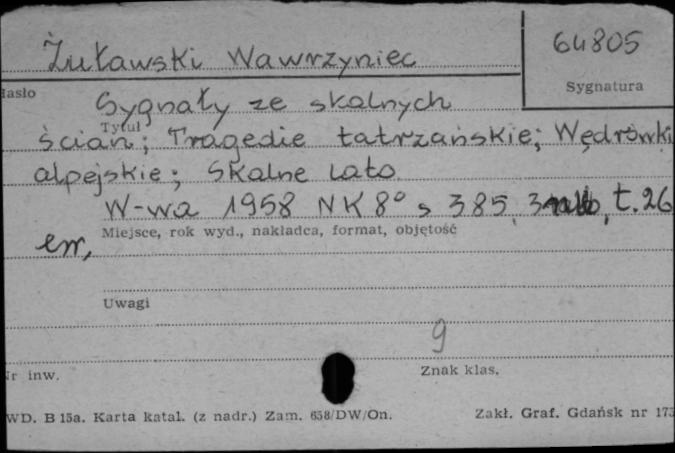 Żuławski Wawrzyniec
64805
Hasło
Sygnatura
Sygnały ze skalnych
Tytuł
ścian; Tragedie tatrzańskie; Wędrówki
alpejskie; Skalne lato
W-wa 1958 NK 8° s 385, t. 26
Miejsce, rok wyd., nakładca, format, objętość
Uwagi
9
Nr inw.
Znak klas.
WD. B 15a. Karta katal. (z nadr.) Zam. 658/DW/On.
Zakł. Graf. Gdańsk nr 173